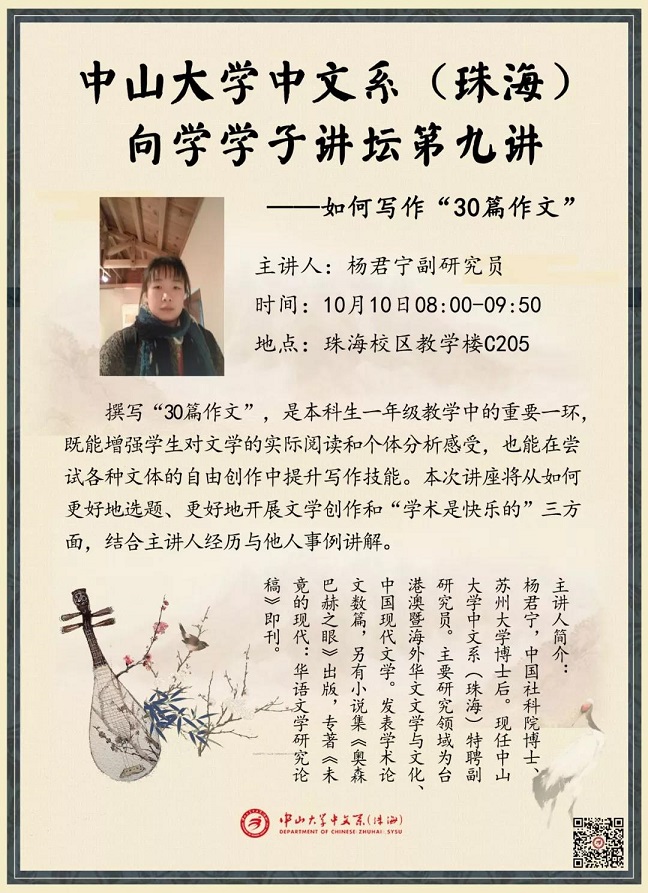 中山大学中文系（珠海）
向学学子讲坛第九讲
——如何写作“30篇作文”
主讲人：杨君宁副研究员
时间：10月10日08:00-09:50
地点：珠海校区教学楼C205
撰写“30篇作文”，是本科生一年级教学中的重要一环，
既能增强学生对文学的实际阅读和个体分析感受，也能在尝
试各种文体的自由创作中提升写作技能。本次讲座将从如何
更好地选题、更好地开展文学创作和“学术是快乐的”三方
面，结合主讲人经历与他人事例讲解。
主讲人简介：
杨君宁，中国社科院博士、
苏州大学博士后。现任中山
大学中文系（珠海）特聘副
研究员。主要研究领域为台
港澳暨海外华文文学与文化、
中国现代文学。发表学术论
文数篇，另有小说集《奥森
巴赫之眼》出版，专著《未
竟的现代：华语文学研究论
稿》即刊。
中山大学中文系(珠海)
DEPARTMENT OF CHINESE·ZHUHAI·SYSU